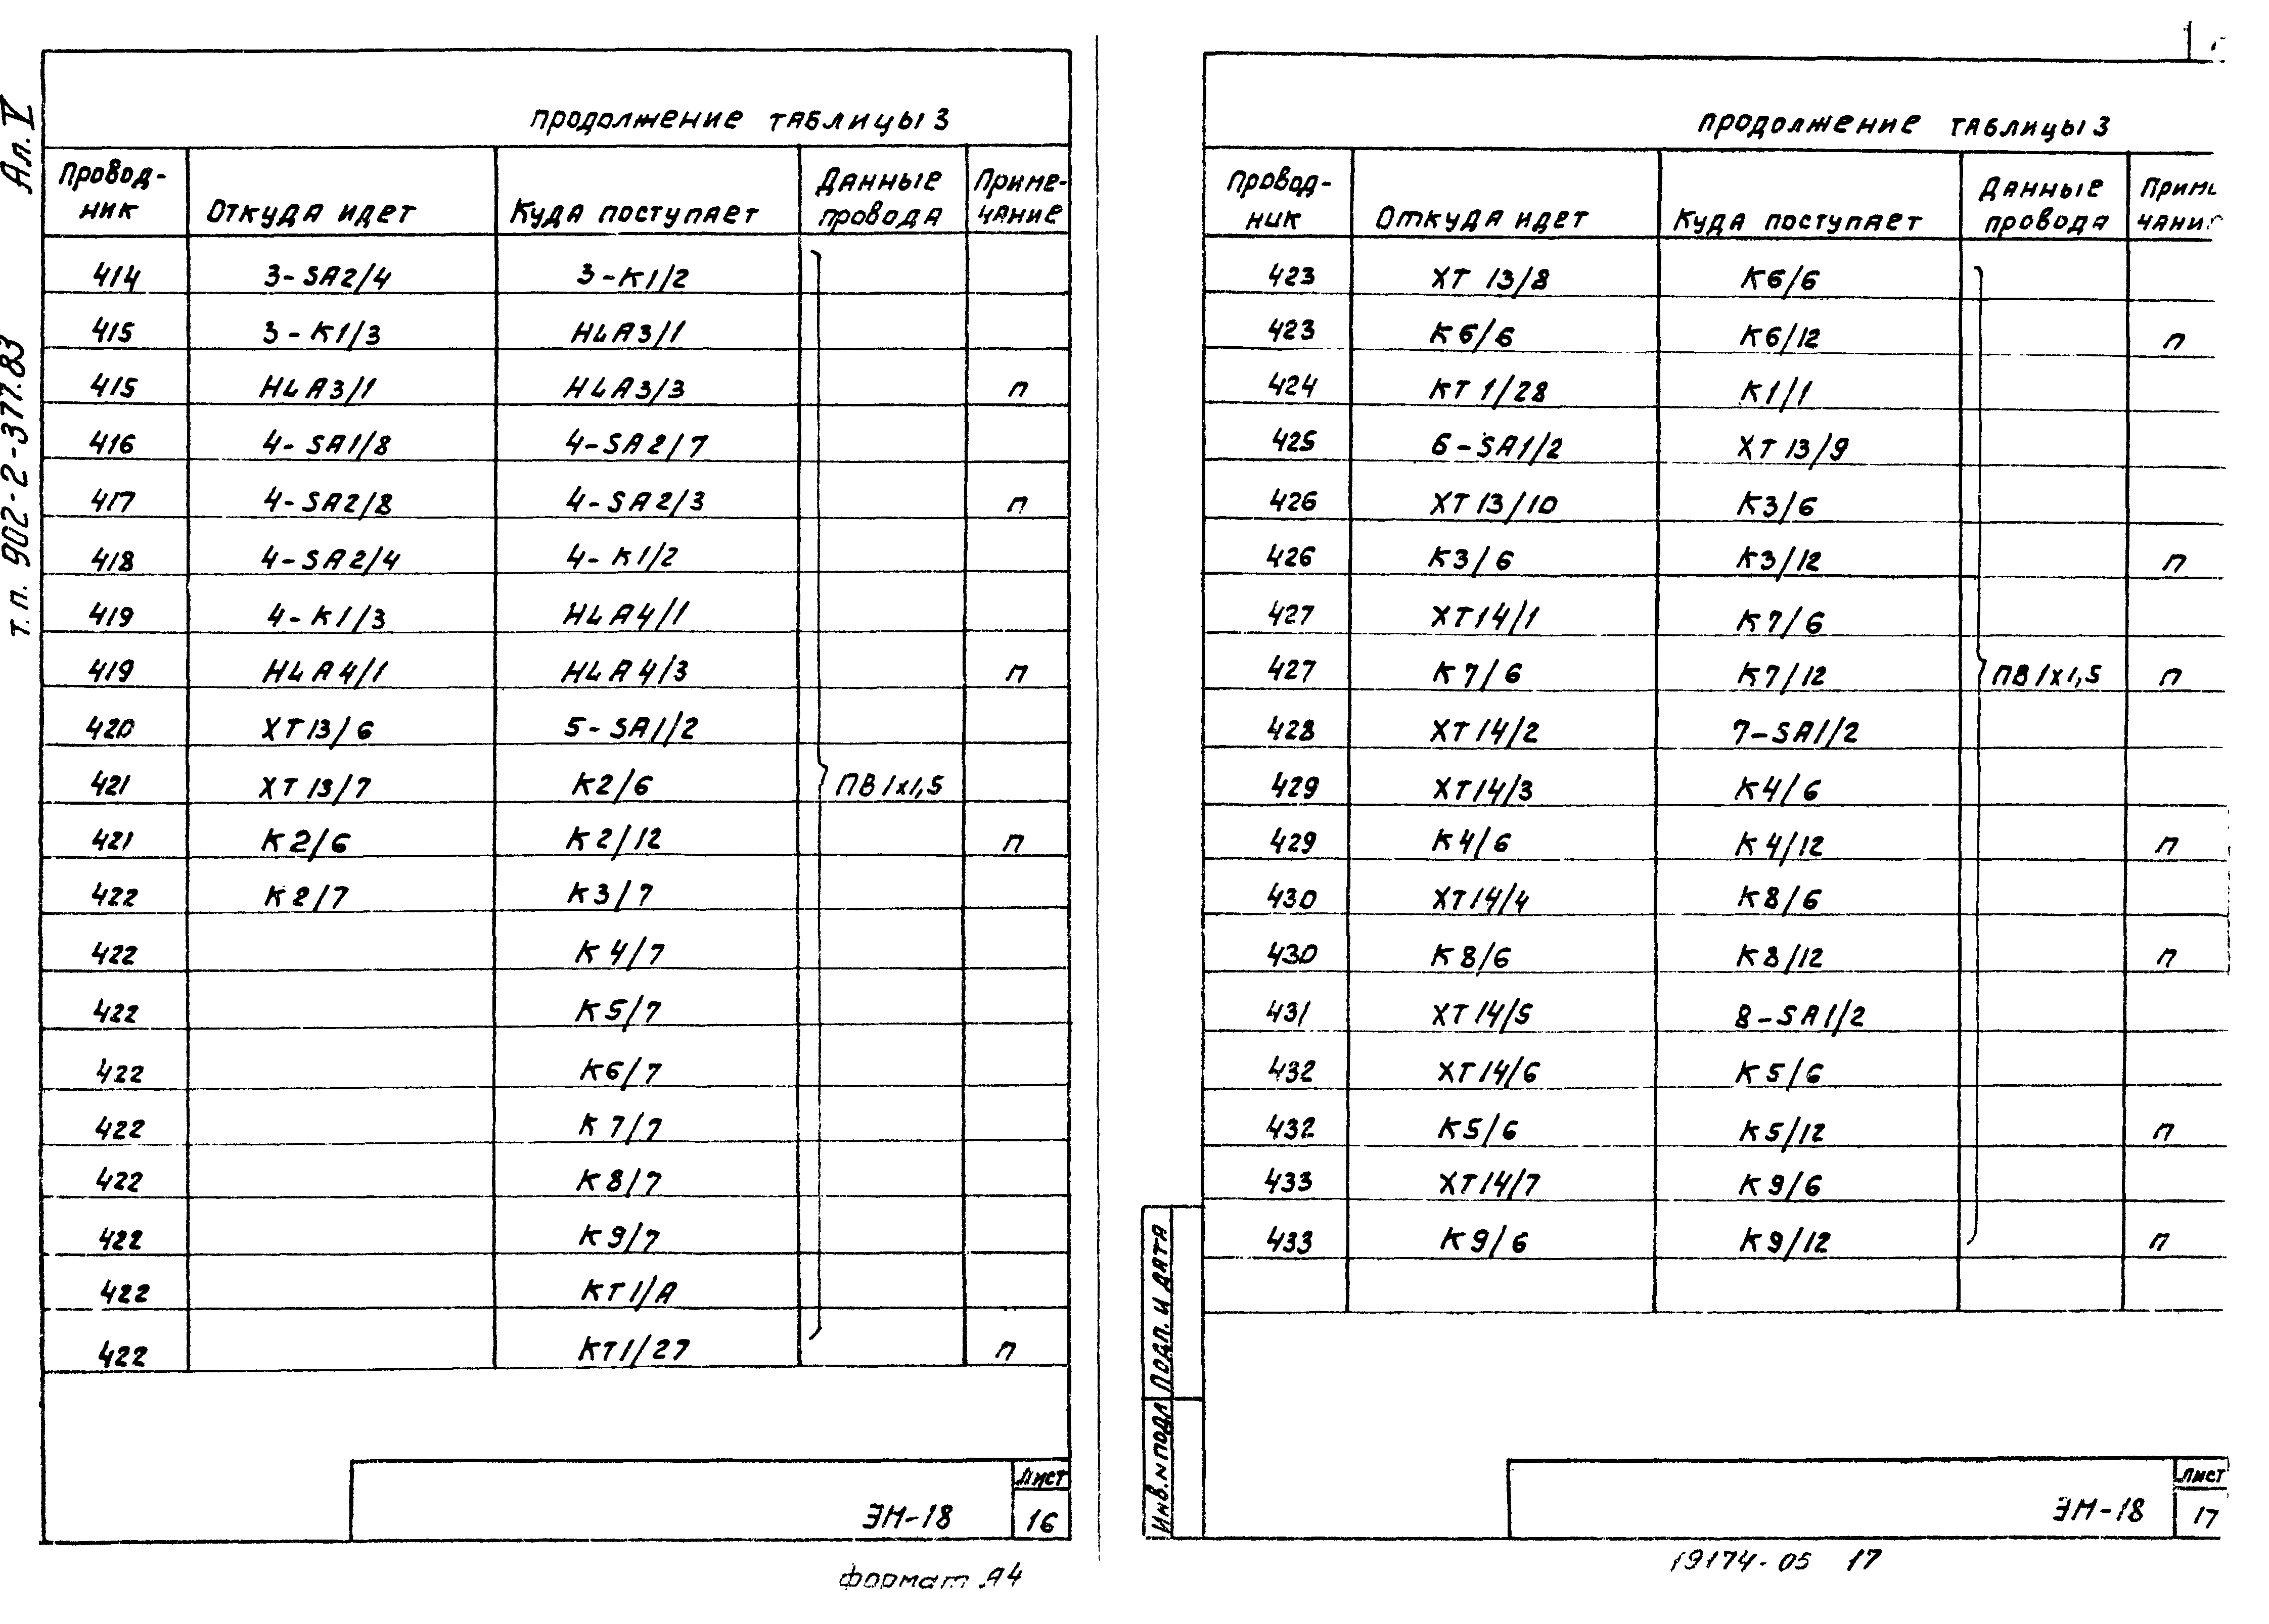 Ал. V
т.п. 902-2-377.83
продолжение таблицы 3
Провод-
ник
Откуда идет
Куда поступает
Данные
провода
Приме-
чание
414 3-SA2/4 3-K1/2
415 3-K1/3 HLA3/1
415 HLA3/1 HLA3/3 п
416 4-SA1/8 4-SA2/7
417 4-SA2/8 4-SA2/3 п
418 4-SA2/4 4-K1/2
419 4-K1/3 HLA4/1
419 HLA4/1 HLA4/3 п
420 XT13/6 5-SA1/2
421 XT13/7 K2/6 ПВ 1х1,5
421 K2/6 K2/12 п
422 K2/7 K3/7
422 K4/7
422 K5/7
422 K6/7
422 K7/7
422 K8/7
422 K9/7
422 KT1/A
422 KT1/27 п
ЭМ-18
Лист
16
формат А4
продолжение таблицы 3
Провод-
ник
Откуда идет
Куда поступает
Данные
провода
Приме
чание
423 XT 13/8 K6/6
423 K6/6 K6/12 п
424 KT 1/28 K1/1
425 6-SA1/2 XT 13/9
426 XT 13/10 K3/6
426 K3/6 K3/12 п
427 XT14/1 K7/6
427 K7/6 K7/12 ПВ 1х1,5 п
428 XT14/2 7-SA1/2
429 XT14/3 K4/6
429 K4/6 K4/12 п
430 XT14/4 K8/6
430 K8/6 K8/12 п
431 XT14/5 8-SA1/2
432 XT14/6 K5/6
432 K5/6 K5/12 п
433 XT14/7 K9/6
433 K9/6 K9/12 п
Инв.N подл Подп. и дата
ЭМ-18
Лист
17
19174-05 17